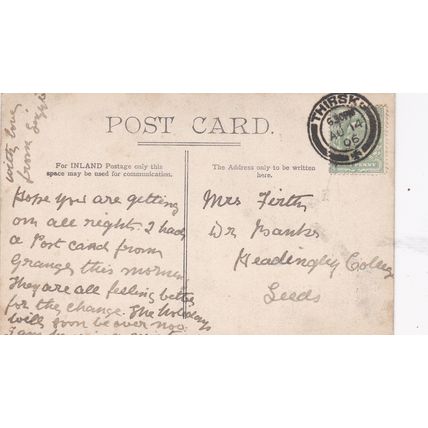 POST CARD.
For INLAND Postage only this
space may be used for communication.
The Address only to be written
here.
THIRSK
AU 14
PENNY
with love
from
Hope you are getting
on all right. I had
a Post card from
this morning
They are all feeling better
for the change. The holidays
will soon be over now.
Mrs Firth
Dr Banks
Headingley College
Leeds